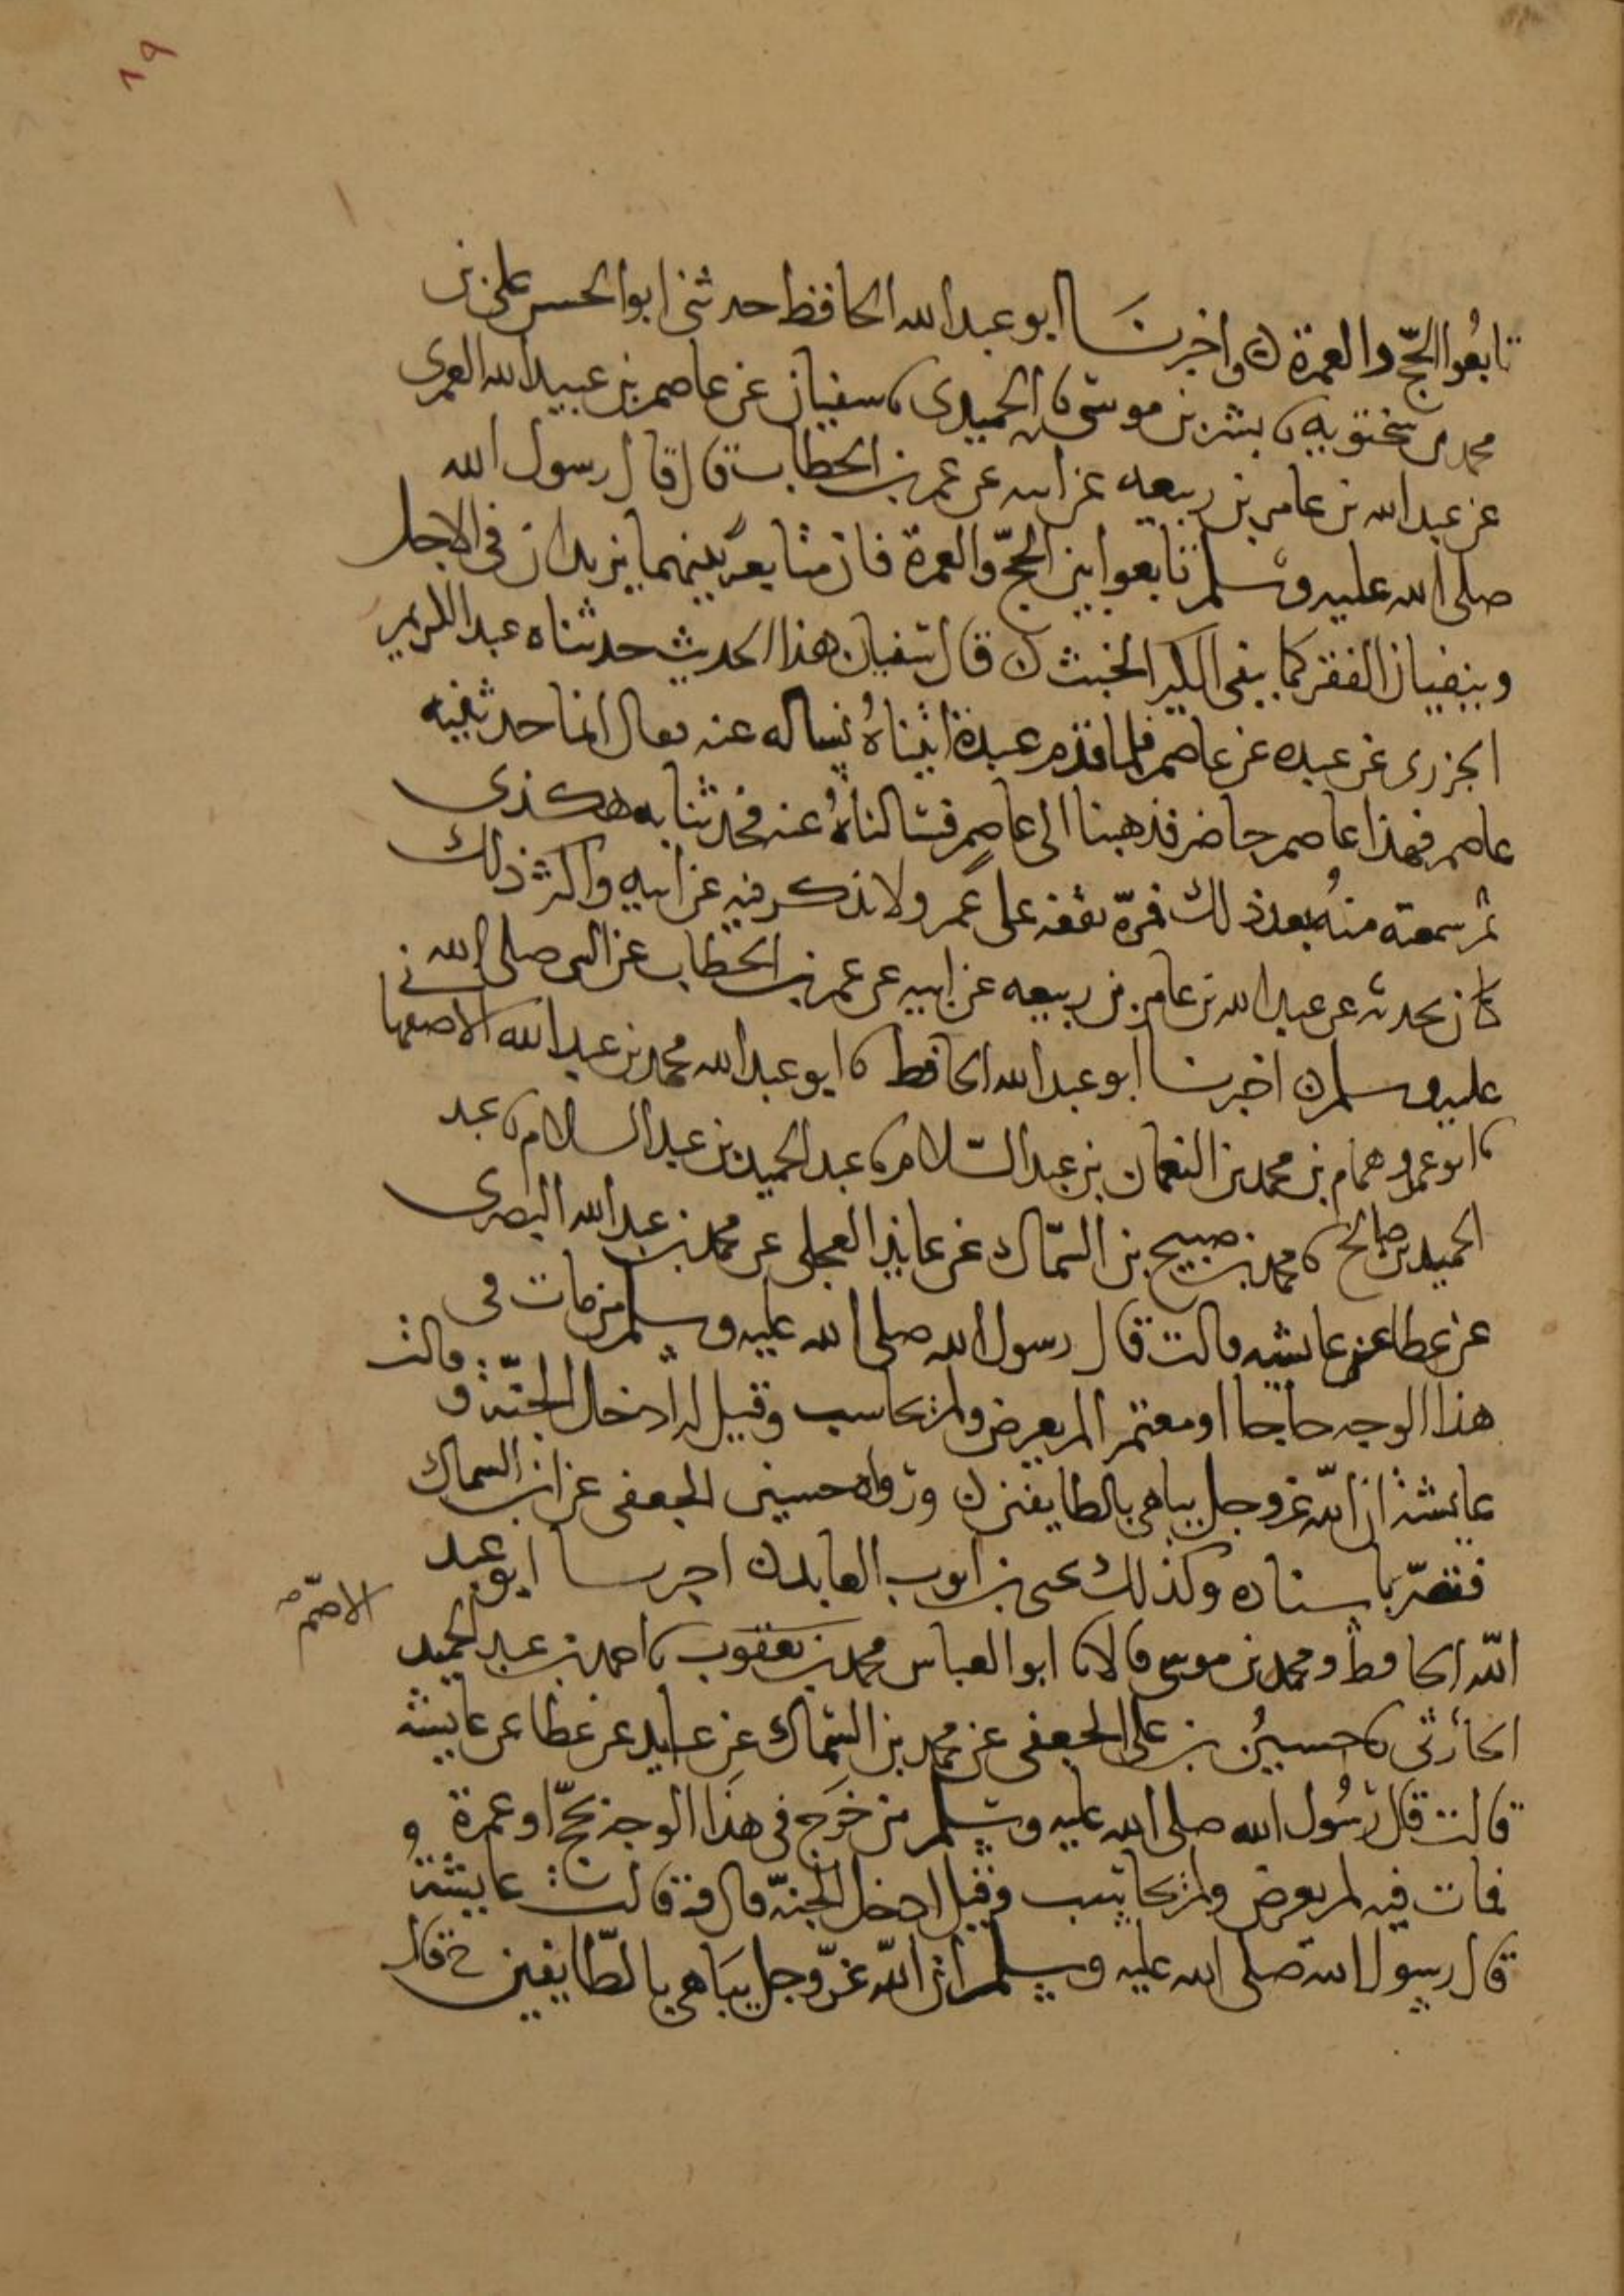 ١٩
تابعوا الحجّ والعمرة ن واخبرنَا ابو عبد الله الحافظ حدثنى ابو الحسن على بن
محمد بن سختويه نا بشر بن موسى نا الحميدى نا سفيان عن عاصم بن عبيد الله العمرى
عن عبد الله بن عامر بن ربيعه عن ابيه عن عمر بن الخطاب قال قال رسول الله
صلى الله عليه وسلم تابعوا بين الحجّ والعمرة فان متابعة بينهما يزيدان فى الاجل
وينفيان الفقر كما ينفى الكير الخبث ن قال سفيان هذا الحديث حدثناه عبد الكريم
الجزرى عن عبده عن عاصم فلما قدم عبدة اتيناهُ نساله عنه فقال انما حدثنيه
عاصم فهذا عاصم حاضر فذهبنا الى عاصم فسالناهُ عنه فحدثنا به هكذى
ثم سمعته منهُ بعد ذلك فمرّة يقفه على عمر ولا يذكر فيه عن ابيه واكثر ذلك
كان يحدثه عن عبد الله بن عامر بن ربيعه عن ابيه عن عمر بن الخطاب عن النبى صلى الله
عليه وسلم ن اخبرنا ابو عبد الله الحافظ نا ابو عبد الله محمد بن عبد الله الاصفهانى
نا ابو عمرو همام بن محمد بن النعمان بن عبد السّلام نا عبد الحميد بن عبد السلام نا عبد
الحميد بن صالح نا محمد بن صبيح بن السّماك عن عايذ العجلى عن محمد بن عبد الله البصرى
عن عطا عن عايشه قالت قال رسول الله صلى الله عليه وسلم من مات فى
هذا الوجه حاجا او معتمر الم يعرض ولم يحاسب وقيل له ادخل الجنّة وقالت
عايشة ان الله عز وجل يباهى بالطايفين ن ورواه حسين الجعفى عن ابن السماك
فقصّر باسناده وكذلك يحيى بن ايوب العابد ن اخبرنا ابو عبد
الله الحافظ ومحمد بن موسى قالا نا ابو العباس محمد بن يعقوب نا احمد بن عبد الحميد
الاصمّ صح
الحارثى نا حسينُ بن على الجعفى عن محمد بن السّماك عن عايد عن عطا عن عايشه
قالت قال رسُول الله صلى الله عليه وسلم من خَرَج فى هذَا الوجه بحجّ او عمرة
فمات فيه لم يعرض ولم يحاسب وقيل ادخل الجنّة قال وقالت عايشة
قال رسول الله صلى الله عليه وسلم ان الله عزّ وجل يبَاهى بالطّايفين قال